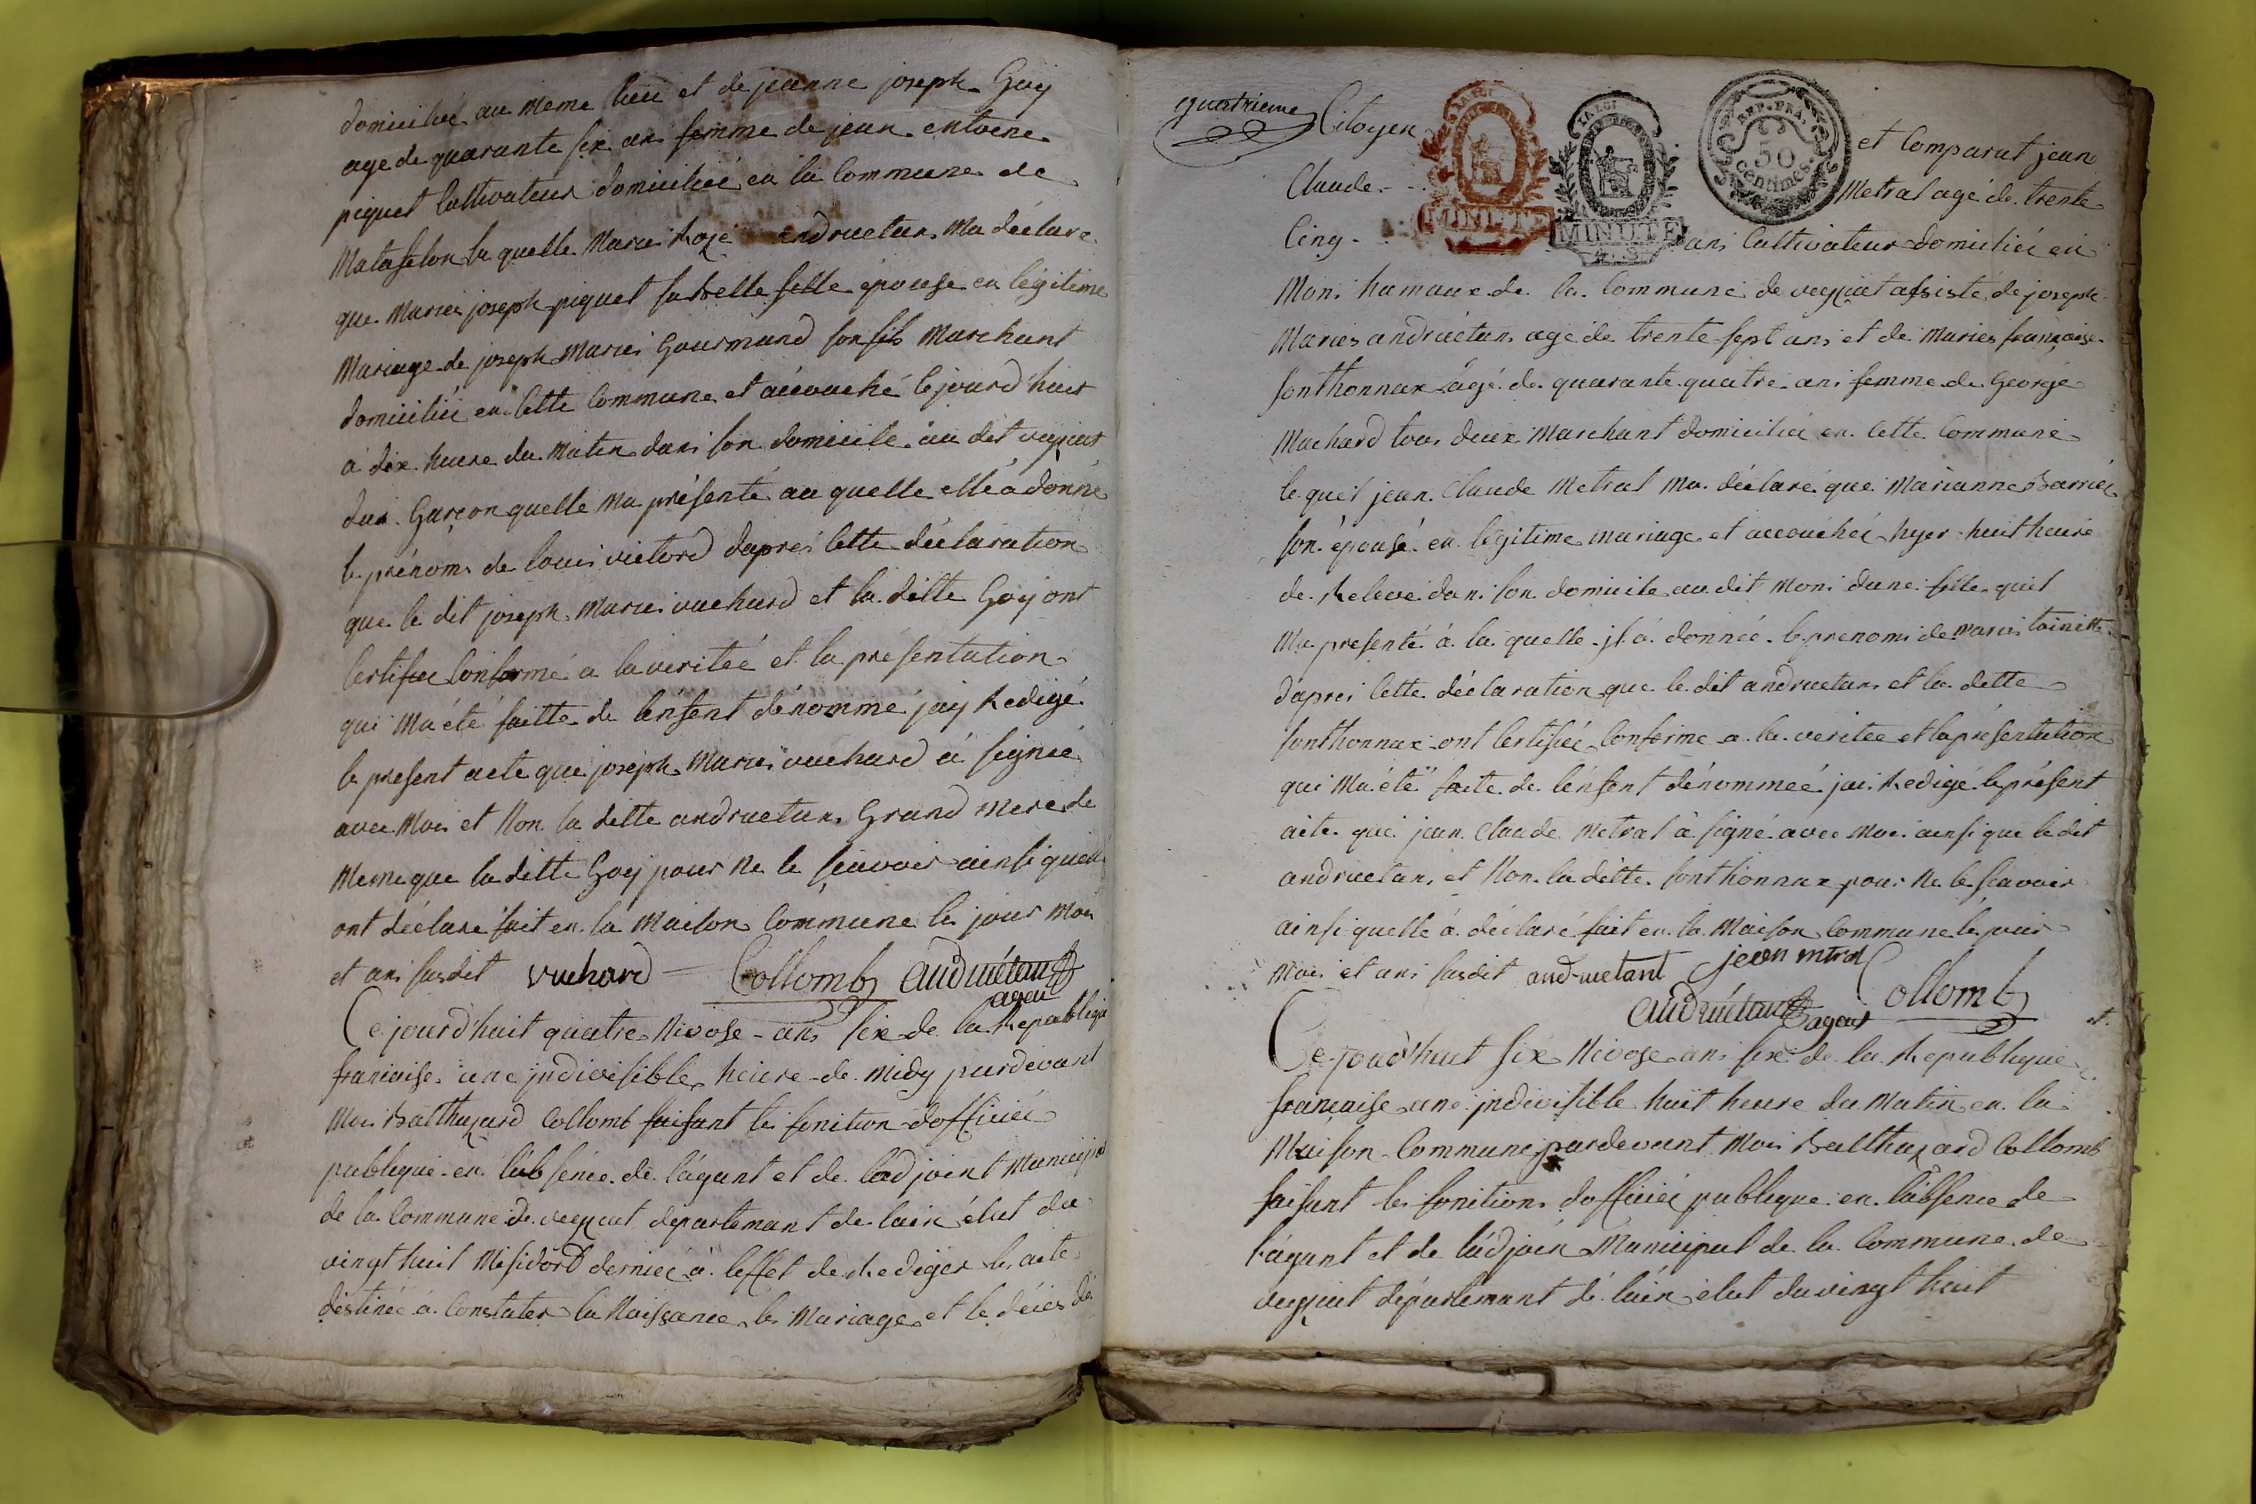 domiciliée au meme lieu et de jeanne joseph Goÿ
agé de quarante six ans femme de jean entoene
piquet Cultivateur domiciliée en la Commune de
Matafelon la quelle Marie Roze andruetan Ma déclare
que Marie joseph piquet sa belle fille epouse en légitime
Mariage de joseph Marie Gourmand son fils Marchant
domicilié en Cette Commune et accouché Cejourd'huit
a dix heure du Matin dans son domicile au dit veyziat
dun Garçon quelle Ma présenté au quelle elle a donné
le prénoms de louis victord dapres Cette déclaration
que le dit joseph Marie vuchard et la ditte Goÿ ont
Certifiée Conforme a la veritée et la présentation
qui Ma été faitte de lénfent dénommé jay Redigé
le present acte que joseph Marie vuchard a signée
avec Moi et Non la ditte andruetan Grand Mere de
Meme que la ditte Goÿ pour Ne le sçavoir ainsi quelle
ont déclare fait en la Maison Commune les jour Moi
et ans susdit vuchard Collomb audruétant
agent
Cejourd'huit quatre Nivose ans six de la Republique
francaise une jndivisible heure de midy pardevant
Moi Balthazard Collomb faisant les fonction dofficiée
publique en labsence de lágant et de ladjoint Municipal
de la Commune de veyziat départemant de lain élut du
vingt huit Mesidord derniée à leffet de Rediger les acte
déstinée a Constater la Naissance les Mariage et le décès dé
quatrieme Citoyen et Comparut jean
LA LOI
LA LOI
REP. FRA.
50
Centimes
MINUTE
MINUTE
Claude Metral agé de trente
Cinq ans Cultivateur domiciliée en
Mons hamaux de la Commune de veyziat assisté de joseph
Maries andruétan agé de trente sept ans et de Maries françoise
sonthonnax âgé de quarante quatre ans femme de George
Machard tous deux Marchant domiciliée en Cette Commune
le quel jean Claude Metral Ma déclaré que Marianne Barrié
son épouse en legitime mariage et accouchée hyer huit heure
de Relevé dans son domicile au dit Mons dune fille quil
Ma presenté à la quelle jl à donnée le prenoms de Maries toinette
d'apres Cette déclaration que le dit andruetan et la ditte
sonthonnax ont Certifiée Conforme a la veritée et la présentation
qui Ma été faite de lénfent dénommeé jai Redigé le présent
acte que jean Claude Metral à signé avec Moi ainsi que le dit
andruetan et Non la ditte sonthonnax pour Ne le sçavoir
ainsi quelle à déclaré fait en la Maison Commune lé jour
Mois et ans susdit andruetant jean mtral Collomb
audruétant agent
Ce jourd'huit six Nivose ans six de la Republique
française une jndivisible huit heure du Matin en la
Maison Commune pardevant Moi Balthazard Collomb
faisant les fonctions dofficiée publique en lábsence de
lágant et de ládjoin Municipal de la Commune de
veyziat départemant dé lain élut du vingt huit